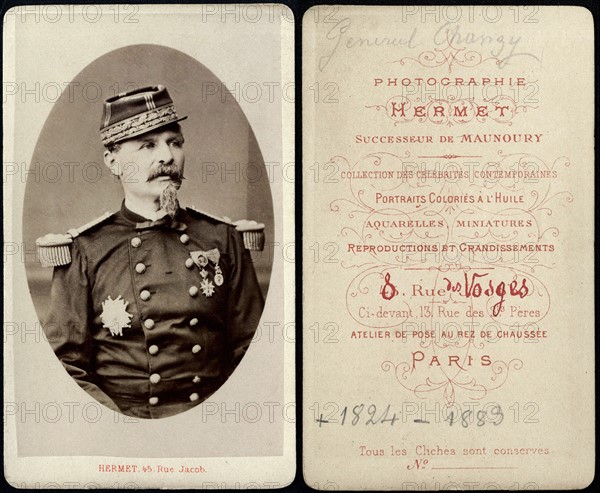 HERMET. 45. Rue Jacob.
General Chanzy
PHOTOGRAPHIE
HERMET
SUCCESSEUR DE MAUNOURY
COLLECTION DES CELEBRITES CONTEMPORAINES
PORTRAITS COLORIÉS A L'HUILE
AQUARELLES MINIATURES
REPRODUCTIONS ET GRANDISSEMENTS
8. RUE des Vosges
Ci-devant, 13, Rue des Sts Pères
ATELIER DE POSE AU REZ DE CHAUSSÉE
PARIS
+ 1824 - 1883
Tous les Clichés sont conservés
No
PHOTO12